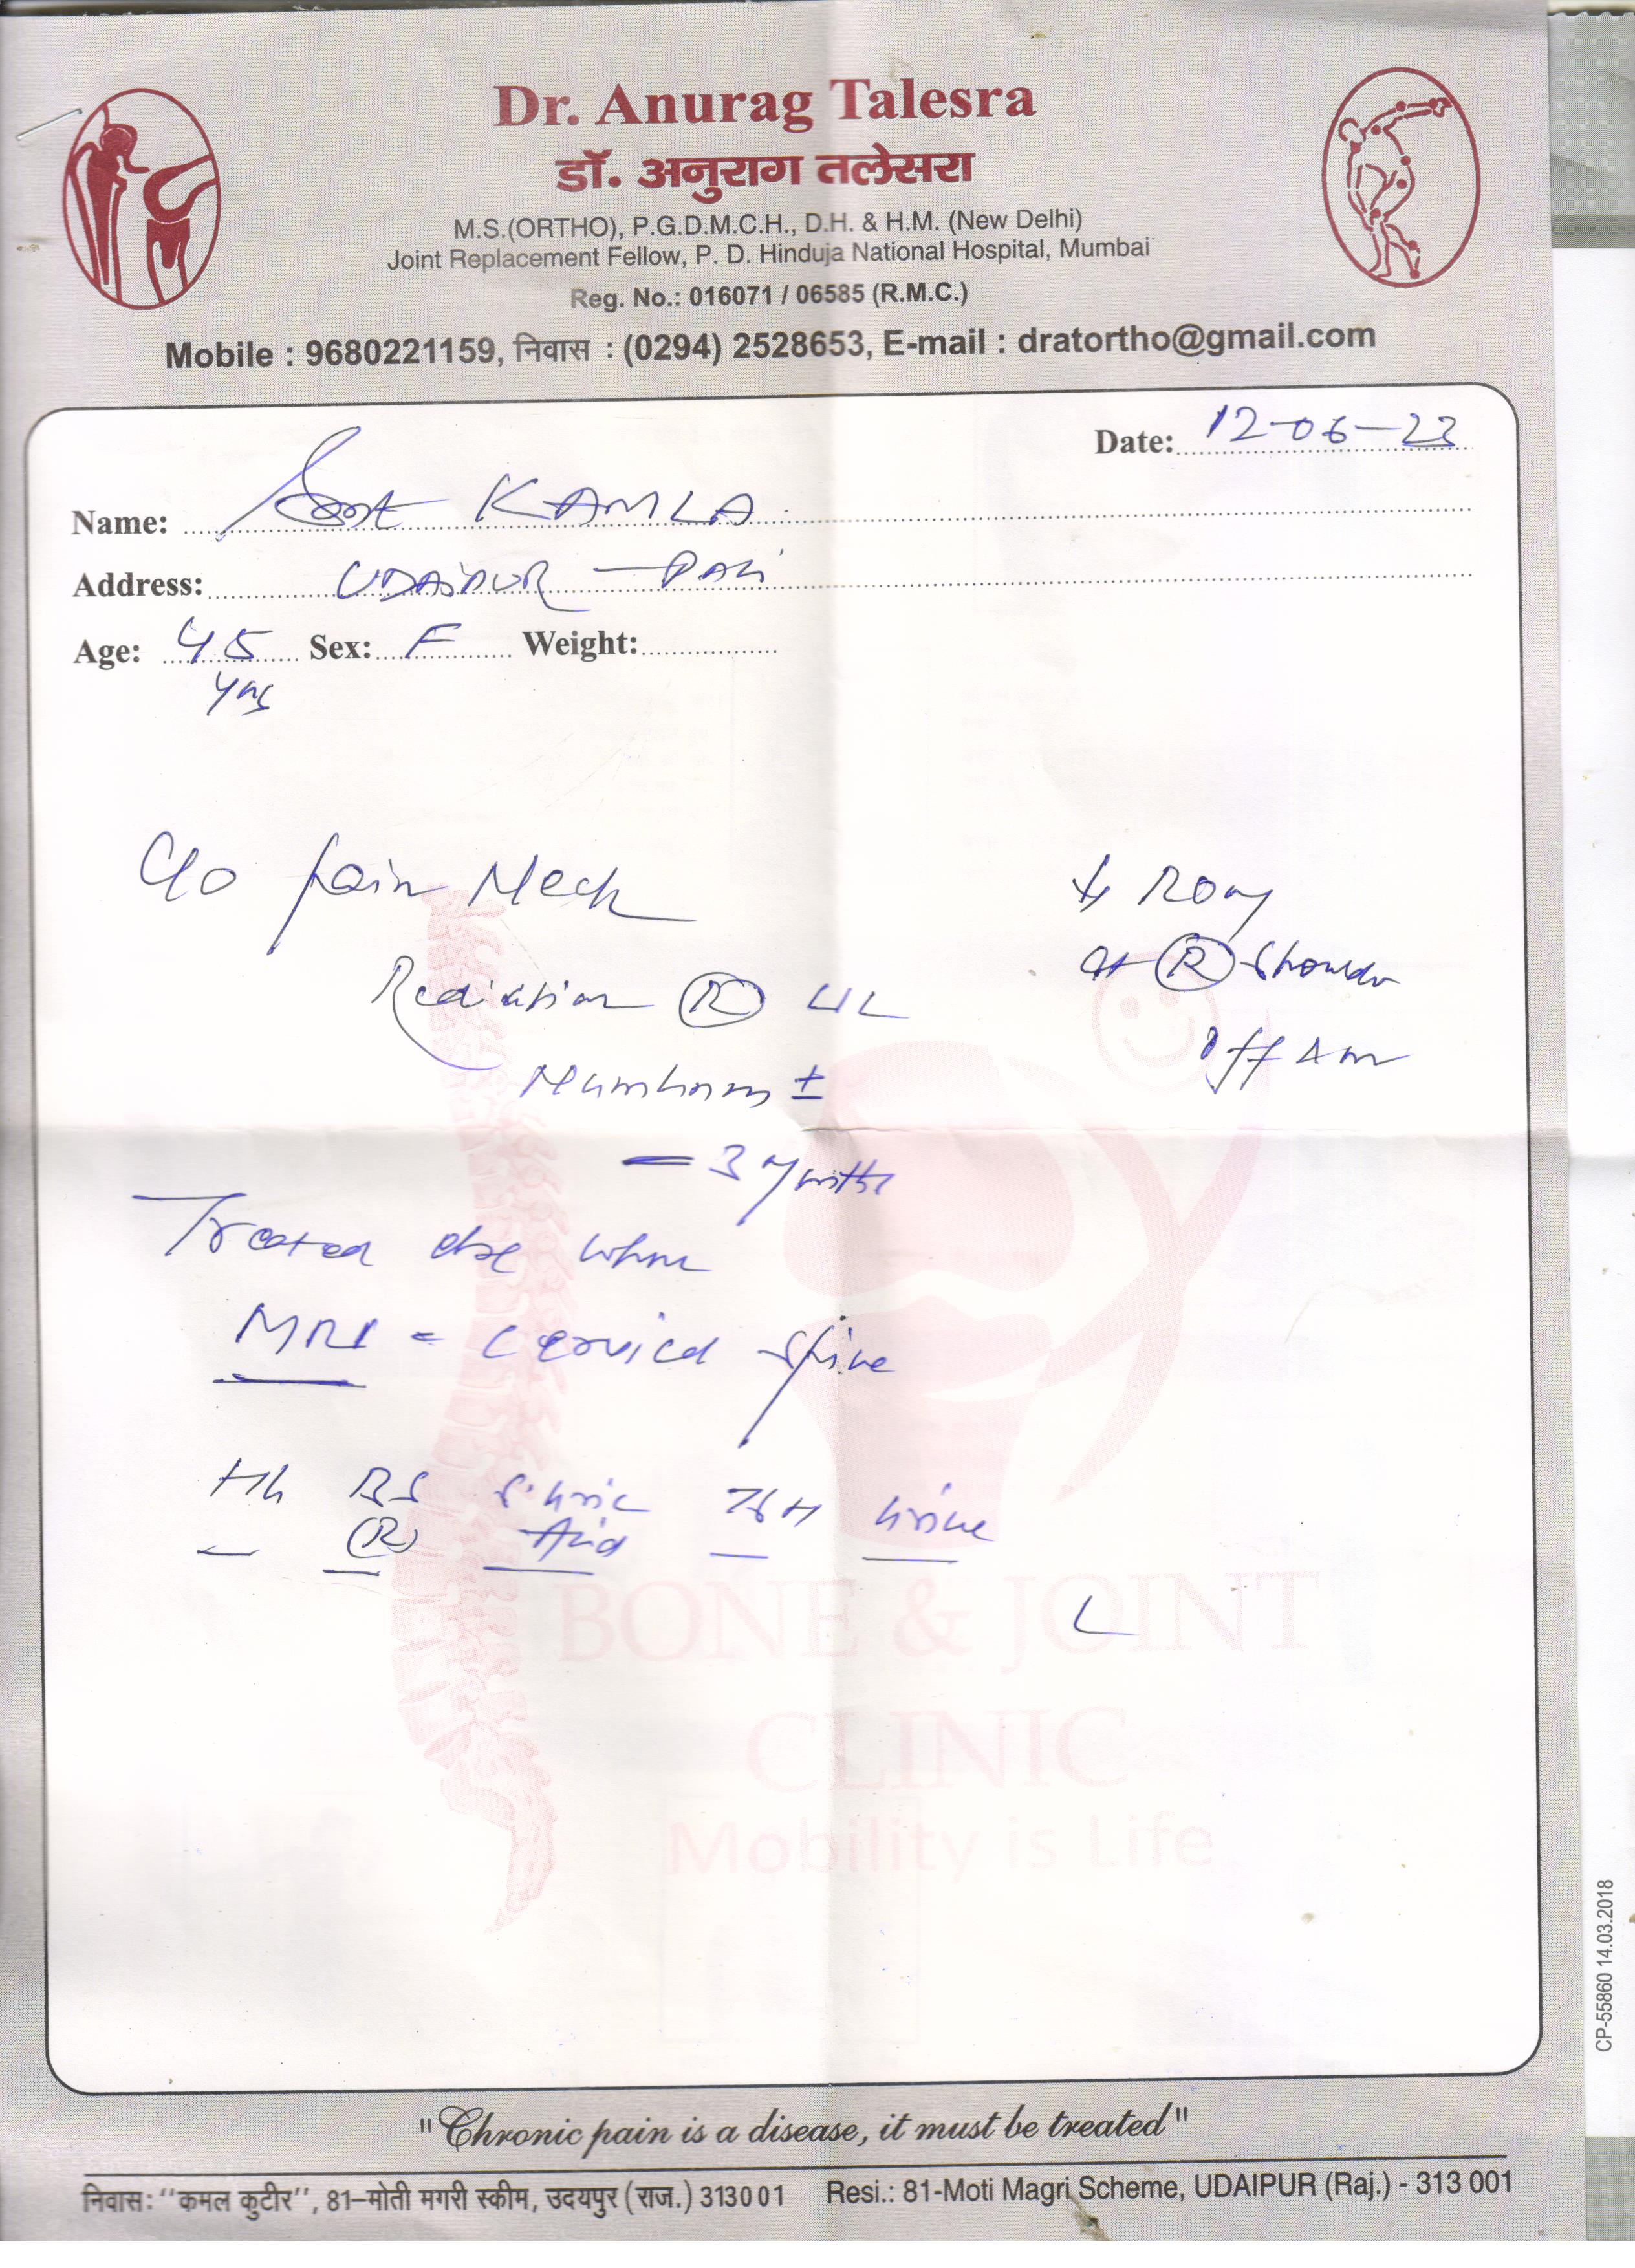 Dr. Anurag Talesra
डॉ. अनुराग तलेसरा
M.S.(ORTHO), P.G.D.M.C.H., D.H. & H.M. (New Delhi)
Joint Replacement Fellow, P. D. Hinduja National Hospital, Mumbai
Reg. No.: 016071 / 06585 (R.M.C.)
Mobile : 9680221159, निवास : (0294) 2528653, E-mail : dratortho@gmail.com
Date: 12-06-23
Name: Smt KAMLA
Address: UDAIPUR - PALI
Age: 45 Sex: F Weight:
yrs
C/o pain Neck
Radiation (R) UL
Numbness ±
- 3 months
X Ray
at (R) Shoulder
Treated else where
MRI - Cervical Spine
Hb BS S. Uric TSH Urine
(R) Acid
BONE & JOINT
CLINIC
Mobility is Life
"Chronic pain is a disease, it must be treated"
निवास: "कमल कुटीर", 81-मोती मगरी स्कीम, उदयपुर (राज.) 313001 Resi.: 81-Moti Magri Scheme, UDAIPUR (Raj.) - 313 001
CP-55860 14.03.2018